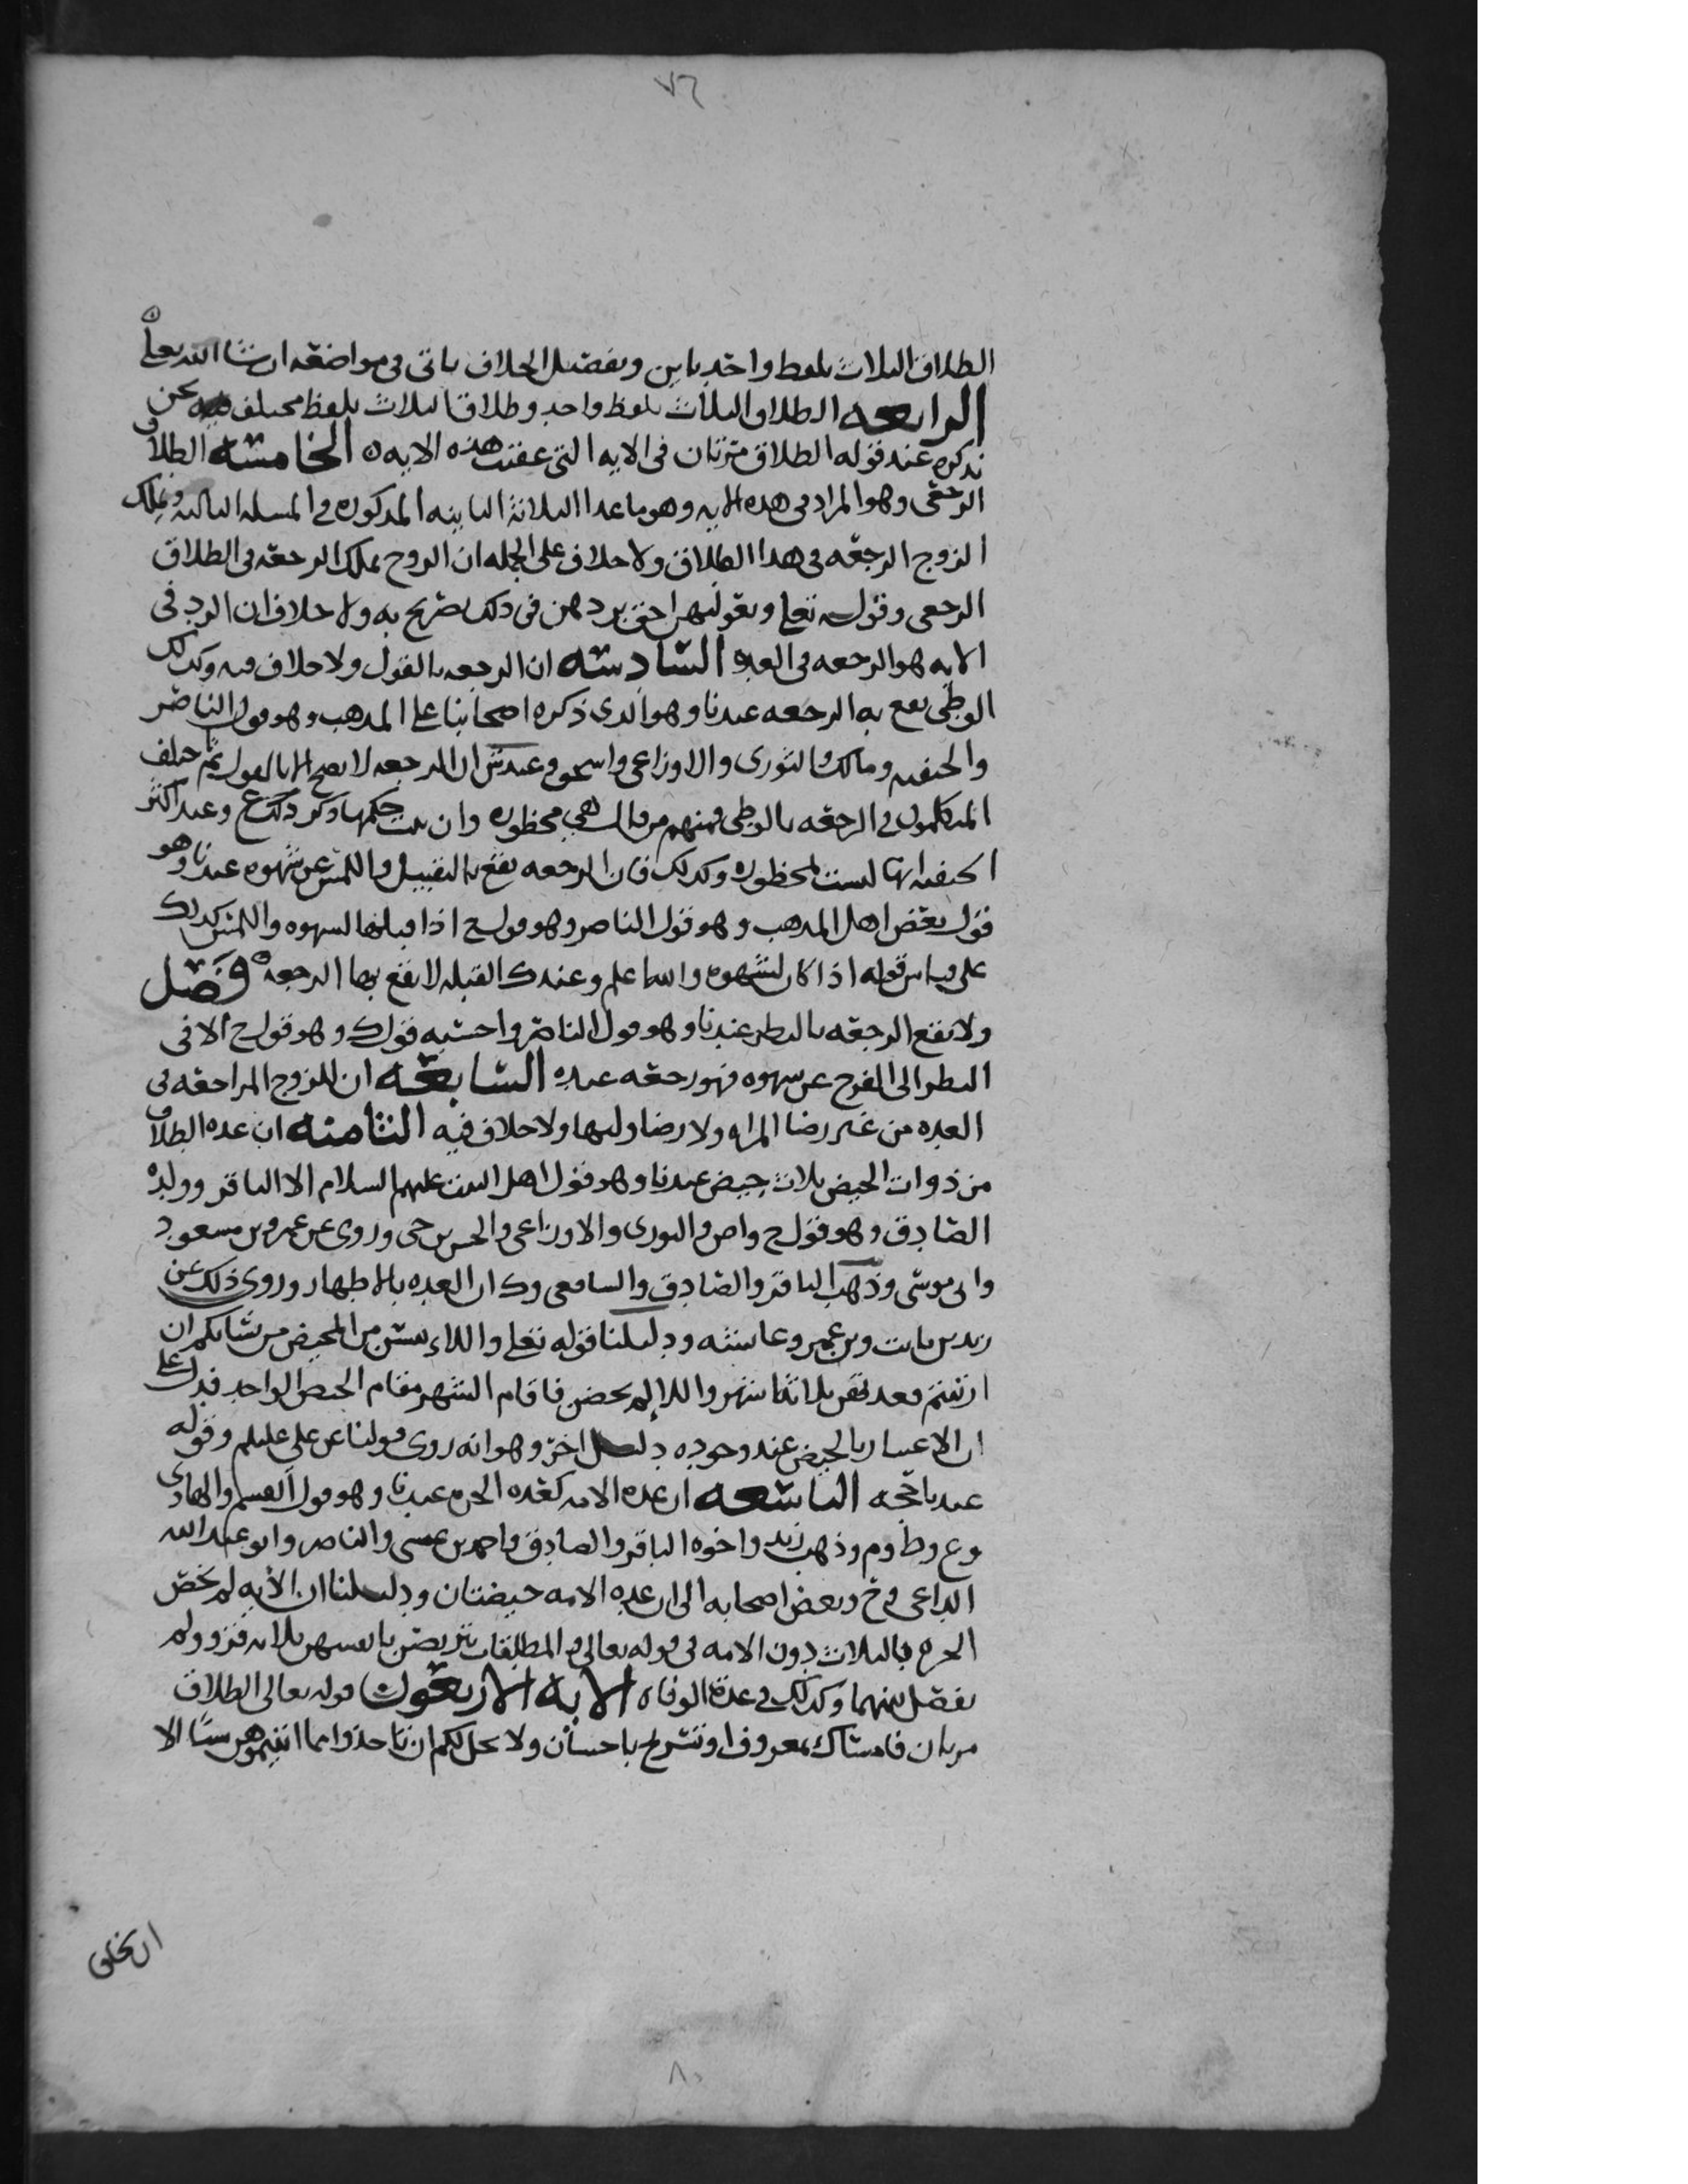 ٧٦
الطلاق الثلاث بلفظ واحد باين وتفصيل الخلاف ياتي في مواضعه ان شا الله تعلى
الرابعه الطلاق الثلاث بلفظ واحد وطلاق الثلاث بلفظ مختلف فيه نحن
نذكره عند قوله الطلاق مرتان في الايه التي عقبت هذه الايه ه الخامسه الطلاق
الرجعي وهو المراد في هذه الايه وهو ما عدا الثلاثه الباينه المذكوره في المسله الثالثه ويملك
الزوج الرجعه في هذا الطلاق ولا خلاف على الجمله ان الزوج يملك الرجعه في الطلاق
الرجعي وقوله تعلى وبعولتهن احق بردهن في ذلك تصريح به ولا خلاف ان الرد في
الايه هو الرجعه في العده السادسه ان الرجعه بالقول ولا خلاف فيه وكذلك
الوطي تقع به الرجعه عندنا وهو الذي ذكره اصحابنا على المذهب وهو قول الناصر
والحنفيه ومالك والثوري والاوزاعي واسحق وعند ش ان الرجعه لا تصح الا بالقول ثم اختلف
المتكلمون في الرجعه بالوطي فمنهم من قال هي محظوره وان ثبت حكمها ذكر ذلك ع وعند اكثر
الحنفيه انها ليست بمحظوره وكذلك فان الرجعه تقع بالتقبيل واللمس عن شهوه عندنا وهو
قول بعض اهل المذهب وهو قول الناصر وهو قول ح اذا قبلها لشهوه واللمس كذلك
على قياس قوله اذا كان لشهوه والله اعلم وعند ك القبله لا تقع بها الرجعه ه فصل
ولا تقع الرجعه بالنظر عندنا وهو قول الناصر واحسبه قول ك وهو قول ح الا في
النظر الى الفرج عن شهوه فهو رجعه عنده السابعه ان للزوج المراجعه في
العده من غير رضا المراه ولا رضا وليها ولا خلاف فيه الثامنه ان عده الطلاق
من ذوات الحيض ثلاث حيض عندنا وهو قول اهل البيت عليهم السلام الا الباقر وولده
الصادق وهو قول ح واص والثوري والاوزاعي والحسن بن حي وروى عن عمر وبن مسعود
وابي موسى وذهب الباقر والصادق والشافعي وك ان العده بالاطهار وروي ذلك عن
زيد بن ثابت وبن عمر وعايشه ودليلنا قوله تعلى واللاء يئسن من المحيض من نسايكم ان
ارتبتم فعدتهن ثلاثه اشهر واللاء لم يحضن فاقام الشهر مقام الحيض الواحد فدل على
ان الاعتبار بالحيض عند وجوده دليل اخر وهو انه روى قولنا عن علي عليلم وقوله
عندنا حجه التاسعه ان عده الامه كعده الحره عندنا وهو قول القسم والهادي
وع وط وم وذهب زيد واخوه الباقر والصادق واحمد بن عيسى والناصر وابو عبد الله
الداعي وح وبعض اصحابه الى ان عده الامه حيضتان ودليلنا ان الايه لم تخص
الحره بالثلاث دون الامه في قوله تعالى والمطلقات يتربصن بانفسهن ثلاثه قرو ولم
تفصل بينهما وكذلك في عده الوفاه الايه الاربعون قوله تعالى الطلاق
مرتان فامساك بمعروف او تسريح باحسان ولا يحل لكم ان تاخذوا مما اتيتموهن شيا الا
ان يخافا
٨٠